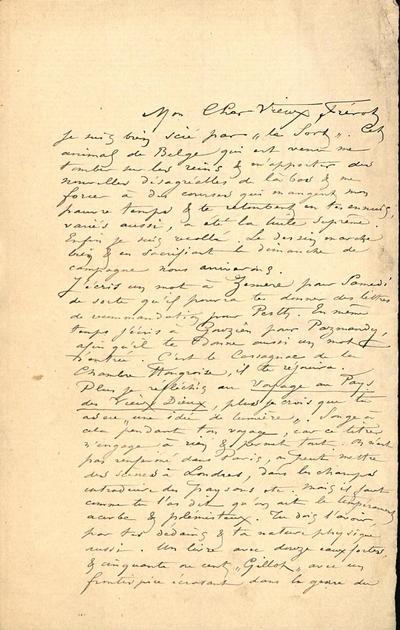 Mon Cher Vieux Frérot
Je suis bien scié par „le Sort". Cet
animal de Belge qui est venu me
tomber sur les reins & m'apporter des
nouvelles désagréables de là bas & me
force à des courses qui mangent mon
pauvre temps & te retombent en ennuis,
variés aussi, a été la tuile suprême.
Enfin je suis recollé. Le dessin marche
bien & en sacrifiant le dimanche de
campagne nous arriverons.
J'écris un mot à par Samedi
de sorte qu'il pourra te donner des lettres
de recommandation pour Pesth. En même
temps j'écris à pour Pazmandy,
afin qu'il te donne aussi un mot
d'entrée. C'est le Cassagnac de la
Chambre Hongroise, il te réjouira.
Plus je réfléchis au Voyage au Pays
des Vieux Dieux, plus je crois que tu
as eu „une idée de lumière". Songe à
cela pendant ton voyage, car ce titre
n'engage à rien & permet tout. On n'est
pas renfermé dans Paris, on peut mettre
des scènes à Londres, dans les champs
introduire des paysans etc. Mais il faut
comme tu l'as dit qu'on ait le tempérament
acerbe & plein
par tes dedans & ta nature physique
aussi. Un livre avec douze eaux fortes,
& cinquante ou cent „Gillot" avec un
frontispice écrasant dans le genre du